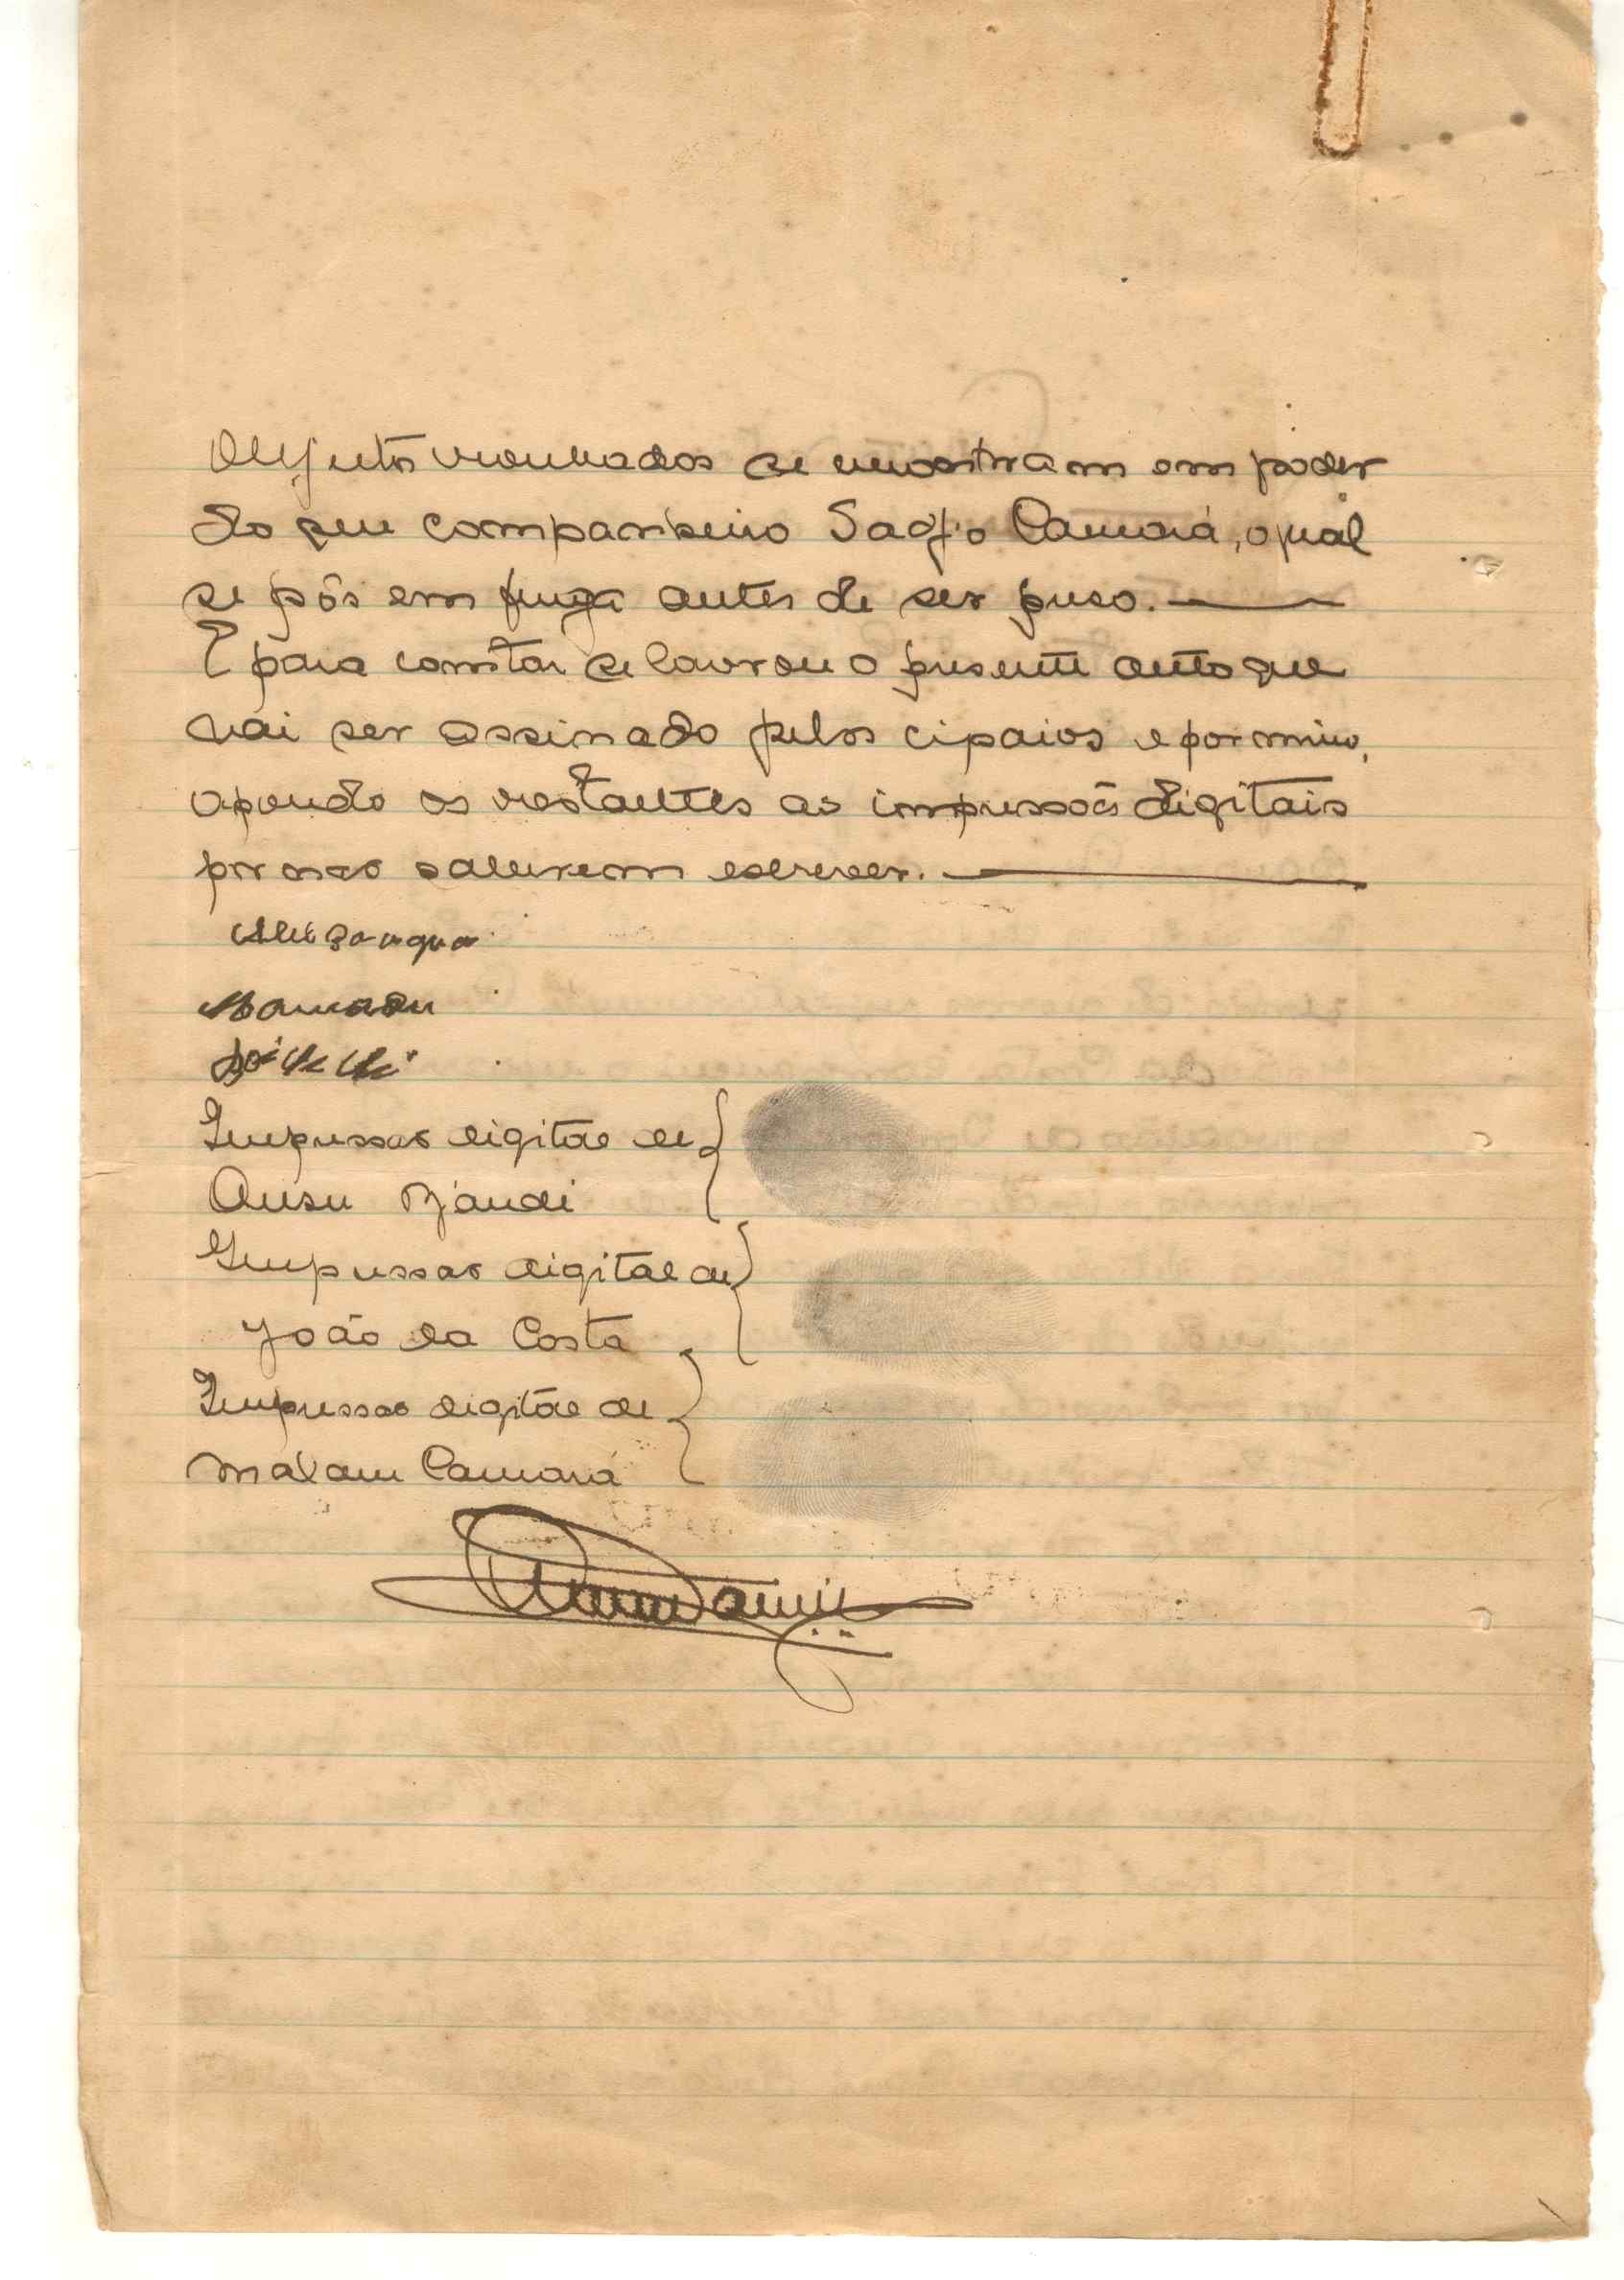 Objectos roubados se encontram em poder
do seu companheiro Sadjo Camará, o qual
se pôs em fuga antes de ser preso.
E para constar se lavrou o presente auto que
vai ser assinado pelos cipaios e por mim,
apondo os restantes as impressões digitais
por não saberem escrever.
Mamadu
Impressão digital de
Ansu Djandi
Impressão digital de
João da Costa
Impressão digital de
Malam Camará